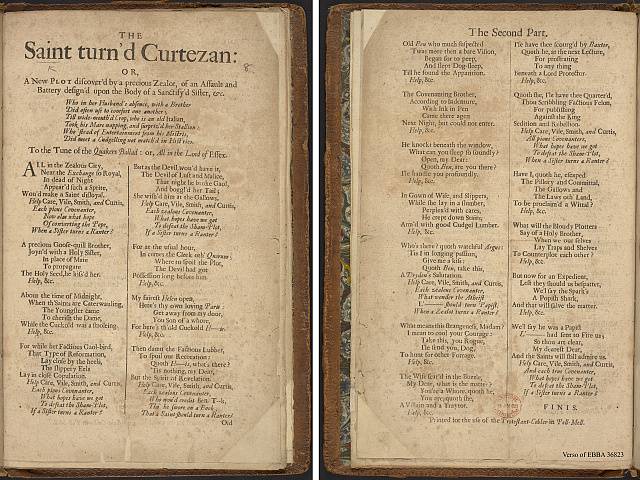 THE
Saint turn'd Curtezan:
OR,
A New PLOT discover'd by a precious Zealot, of an Assault and
Battery design'd upon the Body of a Sanctify'd Sister, &c.
Who in her Husband's absence, with a Brother
Did often use to comfort one another,
Till wide-mouth'd Crop, who is an old Italian,
Took his Mare napping, and surpriz'd her Stallion
Who 'stead of Entertainment from his Mistris,
Did meet a Cudgelling not match'd in Histries.
To the Tune of the Quakers Ballad: or, All in the Land of Essex.
ALL in the Zealous City,
Near the Exchange so Royal,
In dead of Night
Appear'd such a Sprite,
Wou'd make a Saint disloyal.
Help Care, Vile, Smith, and Curtis,
Each pious Covenanter,
Now alas what hope
Of converting the Pope,
When a Sister turns a Ranter?
A precious Goose-quill Brother,
Joyn'd with a Holy Sister,
In place of Mate
To propagate
The Holy Seed, he kiss'd her.
Help, &c.
About the time of Midnight,
When th' Saints are Caterwauling,
The Youngster came
To cherish the Dame,
While the Cuckold was a fooleing.
Help, &c.
For while her Factious Gaol-bird,
That Type of Reformation,
Lay close by the heels,
The slippery Eels
Lay in close Copulation.
Help Care, Vile, Smith, and Curtis,
Each pious Covenanter,
What hopes have we got
To defeat the Sham-Plot,
If a Sister turns a Ranter?
But as the Devil wou'd have it,
The Devil of Lust and Malice,
That night he broke Gaol,
And boogl'd her Tail;
She wish'd him at the Gallows.
Help Care, Vile, Smith, and Curtis,
Each zealous Covenanter,
What hopes have we got
To defeat the Sham-Plot,
If a Sister turns a Ranter?
For at the usual hour,
In comes the Cleek of
Where to spoil the Plot,
The Devil had got
Possession long before him.
Help, &c.
My fairest Helen open,
Here's thy own loving Paris:
Get away from my door,
You Son of a whore,
For here's th' old Cuckold H—
Help, &c.
Then damn the Factious Lubber,
To spoil our Recreation:
Quoth H—is, what's there?
Tis nothing, my Dear,
But the Spirit of Revelation.
Help Care, Vile, Smith, and Curtis,
Each zealous Covenanter,
Who wou'd credit Ben. T-k,
Tho' he swore on a Book
That a Saint should turn a Ranter?
Old
The Second Part,
Old Pru who much suspected
'Twas more then a bare Vision,
Began for to peep,
And slept Dog-sleep,
Till he found the Apparition.
Help, &c.
The Covenanting Brother,
According to Indenture,
With Ink in Pen
Came there agen
Next Night, but could not enter.
Help, &c.
He knocks beneath the window,
What can you sleep so soundly?
Open, my Dear:
Quoth Ben, are you there?
I'le handle you profoundly.
Help, &c.
In Gown of Wife, and Slippers,
While she lay in a slumber,
Perplex'd with cares,
He crept down Stairs;
Arm'd with good Cudgel Lumber.
Help, &c.
Who's there? quoth watchful Argus:
Tis I in longing passion,
Give me a kiss:
Quoth Ben, take this,
A Dryden's Salutation.
Help Care, Vile, Smith, and Curtis,
Each zealous Covenanter,
What wonder the Atheist
L—— should turn Papist,
When a Zealot turns a Ranter?
What means this strangeness, Madam?
I mean to cool your Courage:
Take this, you Rogue,
He find you, Dog,
To hunt for other Forrage.
Help, &c.
The Wife scar'd in the Bustle,
My Dear, what is the matter?
You're a Whore, quoth he;
You are, quoth she,
A Villain and a Traytor.
Help, &c.
I'le have thee scourg'd by Baxter,
Quoth he, at the next Lecture,
For prostrating
To any thing
Beneath a Lord Protector.
Help, &c.
Quoth she, I'le have thee Quarter'd,
Thou Scribbling Factious Felon,
For publishing
Against the King
Sedition and Rebellion.
Help Care, Vile, Smith, and Curtis,
All pious Covenanters,
What hopes have we got
To defeat the Sham-Plot,
When a Sister turns a Ranter?
Have I, quoth he, escaped
The Pillory and Committal,
The Gallows and
The Laws oth' Land,
To be proclaim'd a Wittal?
Help, &c.
What will the Bloudy Plotters
Say of a Holy Brother,
When we our selves
Lay Traps and Shelves
To Counterplot each other?
Help, &c.
But now for an Expedient,
Lest they should us bespatter,
We'll say the Spark's
A Popish Shark,
And that will salve the matter.
Help, &c.
We'll say he was a Papist
L—— had sent to Fire us;
So thou art clear,
My dearest Dear,
And the Saints will still admire us.
Help Care, Vile, Smith, and Curtis,
And each true Covenanter,
What hopes have we got
To defeat the Sham-Plot,
If a Sister turns a Ranter?
FINIS.
Printed for the use of the Protestant-Cobler in Pell-Mell.
Verso of EBBA 36823